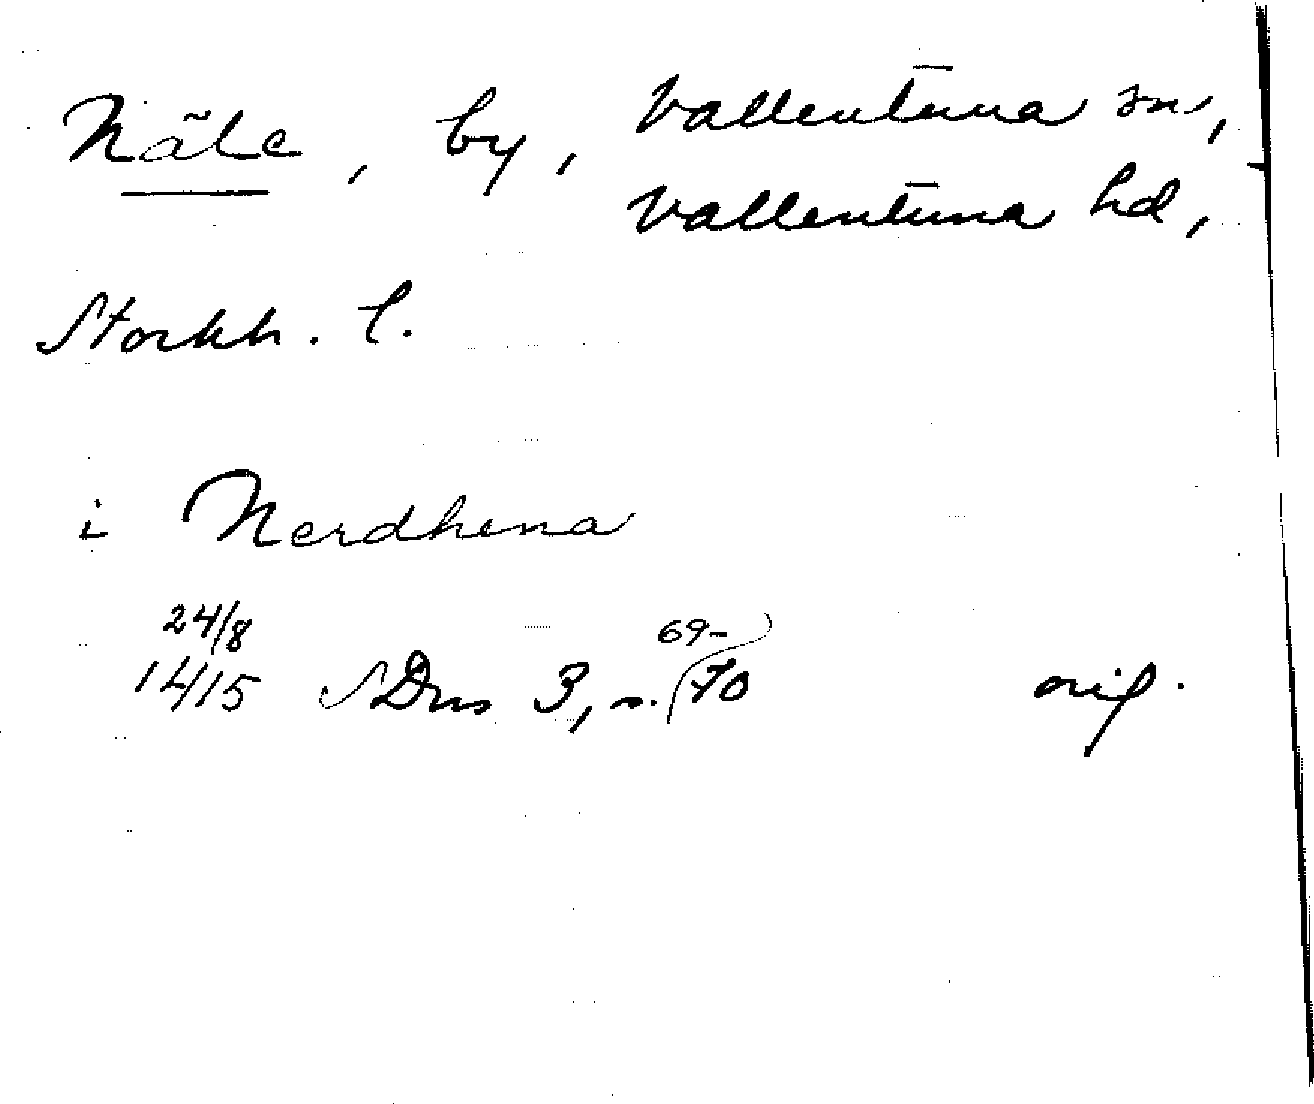 Näle, by, Vallentuna sn,
Vallentuna hd,
Stockh. l.
i Nerdhena
24/8
1415 SDns 3, s. 69-70 orig.